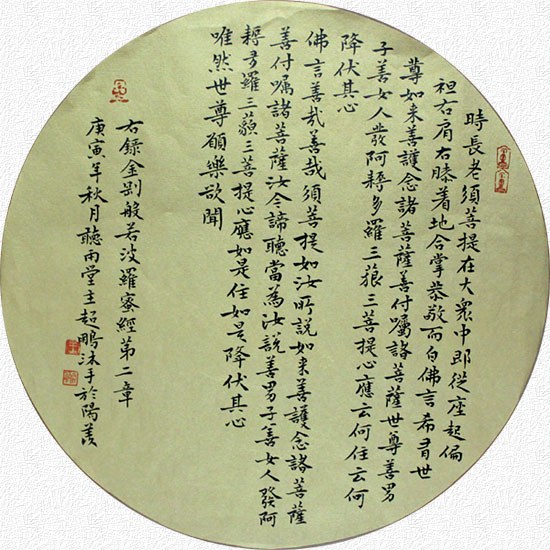 時長老須菩提在大眾中即從座起偏
袒右肩右膝着地合掌恭敬而白佛言希有世
尊如来善護念諸菩薩善付囑諸菩薩世尊善男
子善女人發阿耨多羅三藐三菩提心應云何住云何
降伏其心
佛言善哉善哉須菩提如汝所説如来善護念諸菩薩
善付囑諸菩薩汝今諦聽當為汝説善男子善女人發阿
耨多羅三藐三菩提心應如是住如是降伏其心
唯然世尊願樂欲聞
右録金剛般若波羅蜜經第二章
庚寅年秋月聽雨堂主超鵬沐手於陽羡